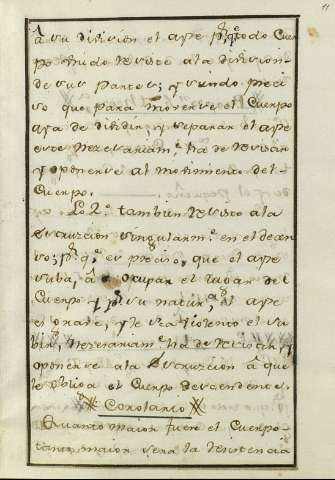 11
â su division el ayre pr qe todo Cuer
po fluido resiste a la division
de sus partes; y siendo preci
so que para moverse el Cuerpo
aya de dividir, y separar el ayre
este necesariamte ha de resistir
y oponerse al movimiento del
Cuerpo.
Lo 2º tambien resiste a la
singularmte en el decen
so; pr qe es preciso, que el ayre
suba, â ocupar el lugar del
Cuerpo y pr su natural el ayre
es grave, y le sea violento el su
bir, necesariamte ha de resistir, y
oponerse a la â que
le obliga el Cuerpo descendente.
Corolario
Quanto maior fuere el Cuerpo
tanto maior sera la resistencia